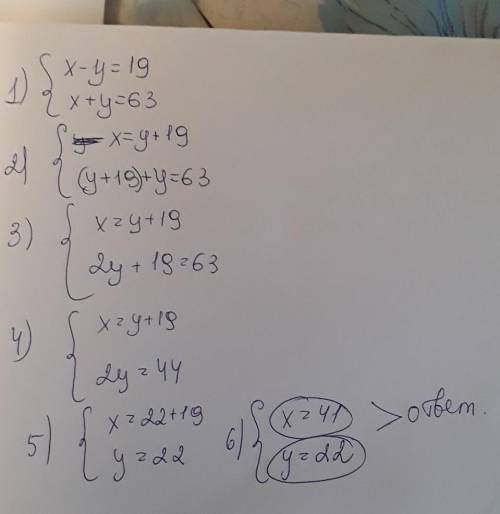 1) { x-y=19
x+y=63
2) { x=y+19
(y+19)+y=63
3) { x=y+19
2y+19=63
4) { x=y+19
2y=44
5) { x=22+19
y=22
6) { x=41 > ответ.
y=22